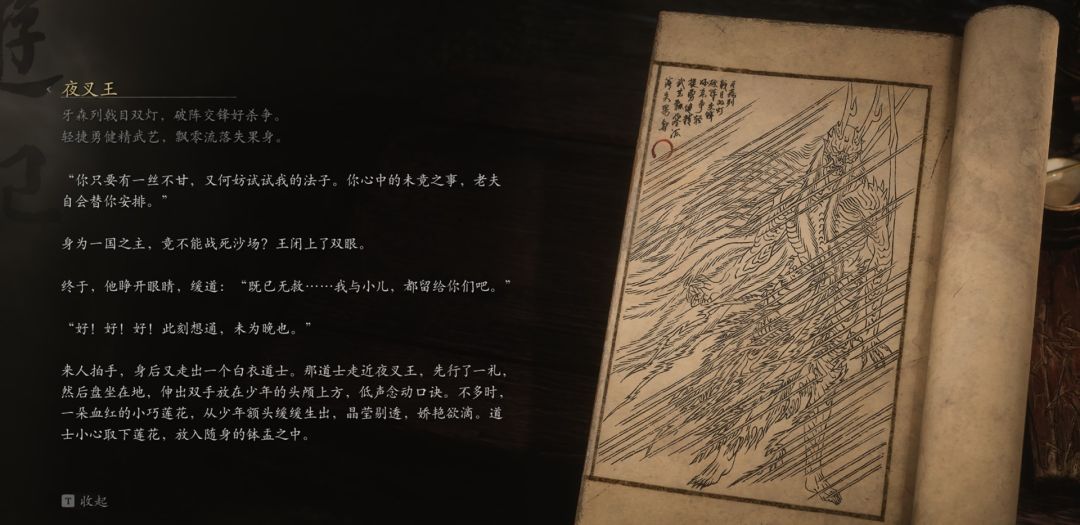 夜叉王
牙森列戟目双灯，破阵交锋好杀争。
轻捷勇健精武艺，飘零流落失果身。
“你只要有一丝不甘，又何妨试试我的法子。你心中的未竟之事，老夫
自会替你安排。”
身为一国之主，竟不能战死沙场？王闭上了双眼。
终于，他睁开眼睛，缓道：“既已无救……我与小儿，都留给你们吧。”
“好！好！好！此刻想通，未为晚也。”
来人拍手，身后又走出一个白衣道士。那道士走近夜叉王，先行了一礼，
然后盘坐在地，伸出双手放在少年的头颅上方，低声念动口诀。不多时，
一朵血红的小巧莲花，从少年额头缓缓生出，晶莹剔透，娇艳欲滴。道
士小心取下莲花，放入随身的钵盂之中。
T 收起